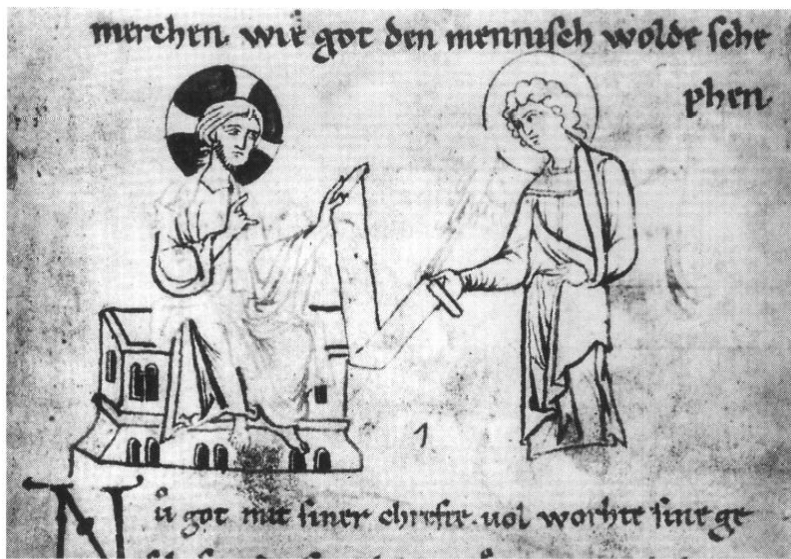 merchen. wie got den mennisch wolde sche
phen.
1
Nů got mit siner chrefte. uol worhte sine ge